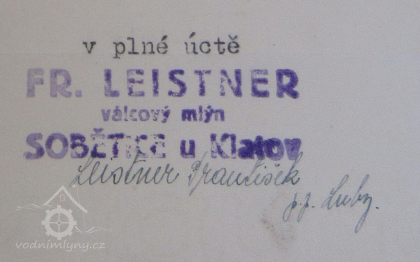 v plné úctě
FR. LEISTNER
válcový mlýn
SOBĚTICE u Klatov
Leistner František
p.z. Luby.
vodnimlyny.cz